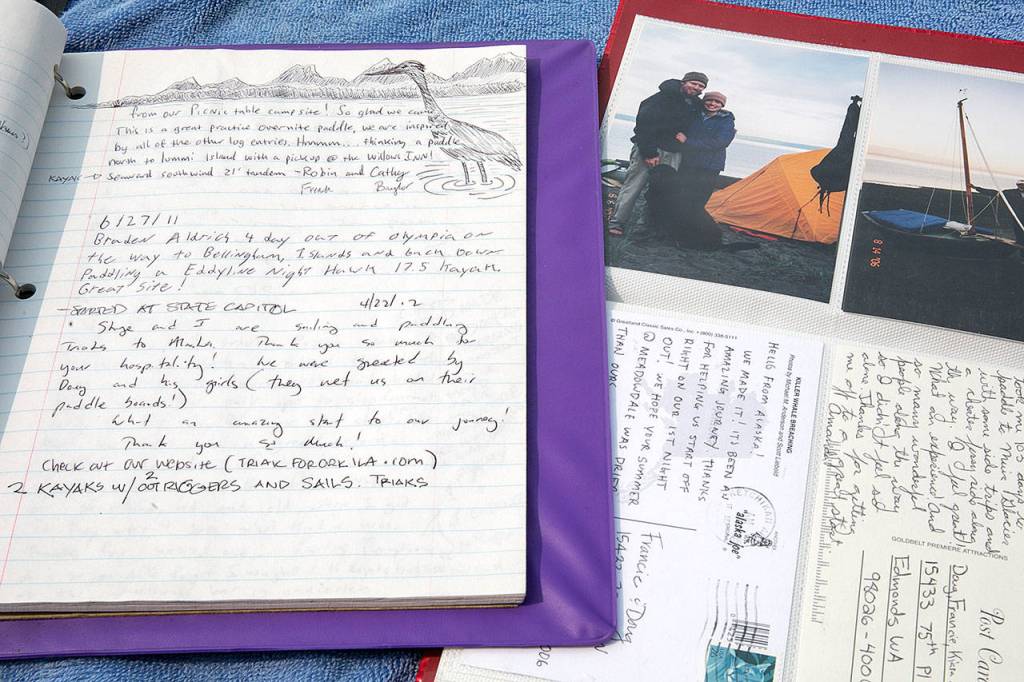 from our Picnic table campsite! So glad we can
This is a great practice overnite paddle, we are inspired
by all of the other log entries. Hmmm... thinking, a paddle
north to Lummi Island with a pickup @ the Willows INN!
KAYAK → Seaward southwind 21' tandem - Robin and Cathy
6/27/11
Braden Aldrich 4 day out of Olympia on
the way to Bellingham, Islands and back down
Paddling a Eddyline Night Hawk 17.5 Kayak.
Great Site!
- STARTED AT STATE CAPITOL 4/22/12
and I are sailing and paddling
Triaks to Alaska. Thank you so much for
your hospitality! We were greeted by
Doug and his girls (they met us on their
paddle boards!)
What an amazing start to our journey!
Thank you so much!
Check out our website (TRIAKFORORKILA.com)
2 KAYAKS W/ 2 OUTRIGGERS AND SAILS. TRIAKS
8 14 '06
© Greatland Classic Sales Co., Inc. • (800) 338-5111
KILLER WHALE BREACHING
Photo by Michael M. Anderson and Scott Liebold
HELLO FROM ALASKA!
WE MADE IT! IT'S BEEN AN
AMAZING JOURNEY! THANKS
FOR HELPING US START OFF
RIGHT ON OUR 1ST NIGHT
OUT! WE HOPE YOUR SUMMER
@ MEADOWDALE WAS
THAN OURS
alaska joe
Francie & Doug
took me 103 days to
paddle to Muir Glacier
with some side trips and
so many wonderful
people along the way
so I didn't feel so
alone. Thanks for getting
me off to a good start
GOLDBELT PREMIERE ATTRACTIONS
Post Car
Doug, Francie,
15433 75th Pl
Edmonds WA
98026-400